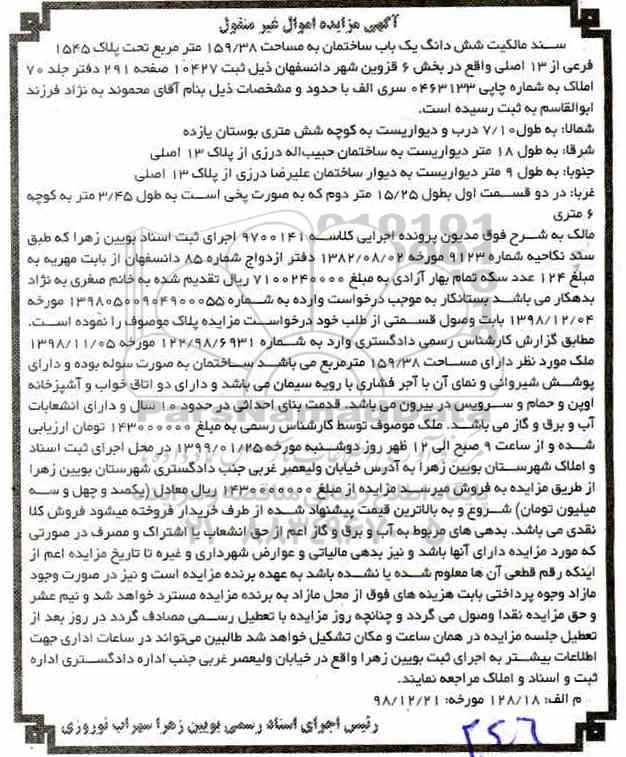 آگهی مزایده اموال غیر منقول
سند مالکیت شش دانگ یک باب ساختمان به مساحت ۱۵۹/۳۸ متر مربع تحت پلاک ۱۵۴۵
فرعی از ۱۳ اصلی واقع در بخش ۶ قزوین شهر دانسفهان ذیل ثبت ۱۰۴۲۷ صفحه ۲۹۱ دفتر جلد ۷۰
املاک به شماره چاپی ۰۴۶۳۱۳۳ سری الف با حدود و مشخصات ذیل بنام آقای محموند به نژاد فرزند
ابوالقاسم به ثبت رسیده است.
شمالا: به طول ۷/۱۰ درب و دیواریست به کوچه شش متری بوستان یازده
شرقا: به طول ۱۸ متر دیواریست به ساختمان حبیب‌اله درزی از پلاک ۱۳ اصلی
جنوبا: به طول ۹ متر دیواریست به دیوار ساختمان علیرضا درزی از پلاک ۱۳ اصلی
غربا: در دو قسمت اول بطول ۱۵/۲۵ متر دوم که به صورت پخی است به طول ۳/۴۵ متر به کوچه
۶ متری
مالک به شرح فوق مدیون پرونده اجرایی کلاسه ۹۷۰۰۱۴۱ اجرای ثبت اسناد بویین زهرا که طبق
سند نکاحیه شماره ۹۱۲۳ مورخه ۱۳۸۲/۰۸/۰۲ دفتر ازدواج شماره ۸۵ دانسفهان از بابت مهریه به
مبلغ ۱۲۴ عدد سکه تمام بهار آزادی به مبلغ ۷۱۰۰۲۴۰۰۰۰ ریال تقدیم شده به خانم صغری به نژاد
بدهکار می باشد بستانکار به موجب درخواست وارده به شماره ۱۳۹۸۰۵۰۰۹۰۴۹۰۰۰۵۵ مورخه
۱۳۹۸/۱۲/۰۴ بابت وصول قسمتی از طلب خود درخواست مزایده پلاک موصوف را نموده است.
مطابق گزارش کارشناس رسمی دادگستری وارد به شماره ۱۲۲/۹۸/۶۹۳۱ مورخه ۱۳۹۸/۱۱/۰۵
ملک مورد نظر دارای مساحت ۱۵۹/۳۸ مترمربع می باشد ساختمان به صورت سوله بوده و دارای
پوشش شیروانی و نمای آن با آجر فشاری با رویه سیمان می باشد و دارای دو اتاق خواب و آشپزخانه
اوپن و حمام و سرویس در بیرون می باشد. قدمت بنای احداثی در حدود ۱۰ سال و دارای انشعابات
آب و برق و گاز می باشد. ملک موصوف توسط کارشناس رسمی به مبلغ ۱۴۳۰۰۰۰۰۰ تومان ارزیابی
شده و از ساعت ۹ صبح الی ۱۲ ظهر روز دوشنبه مورخه ۱۳۹۹/۰۱/۲۵ در محل اجرای ثبت اسناد
و املاک شهرستان بویین زهرا به آدرس خیابان ولیعصر غربی جنب دادگستری شهرستان بویین زهرا
از طریق مزایده به فروش میرسد. مزایده از مبلغ ۱۴۳۰۰۰۰۰۰۰ ریال معادل (یکصد و چهل و سه
میلیون تومان) شروع و به بالاترین قیمت پیشنهاد شده از طرف خریدار فروخته میشود فروش کلا
نقدی می باشد. بدهی های مربوط به آب و برق و گاز اعم از حق انشعاب یا اشتراک و مصرف در صورتی
که مورد مزایده دارای آنها باشد و نیز بدهی مالیاتی و عوارض شهرداری و غیره تا تاریخ مزایده اعم از
اینکه رقم قطعی آن ها معلوم شده یا نشده باشد به عهده برنده مزایده است و نیز در صورت وجود
مازاد وجوه پرداختی بابت هزینه های فوق از محل مازاد به برنده مزایده مسترد خواهد شد و نیم عشر
و حق مزایده نقدا وصول می گردد و چنانچه روز مزایده با تعطیل رسمی مصادف گردد در روز بعد از
تعطیل جلسه مزایده در همان ساعت و مکان تشکیل خواهد شد طالبین می‌تواند در ساعات اداری جهت
اطلاعات بیشتر به اجرای ثبت بویین زهرا واقع در خیابان ولیعصر غربی جنب اداره دادگستری اداره
ثبت و اسناد و املاک مراجعه نمایند.
م الف: ۱۲۸/۱۸ مورخه: ۹۸/۱۲/۲۱
رئیس اجرای اسناد رسمی بویین زهرا سهراب نوروزی
۲۲۶
ParsNamadData
۰۲۱-۸۸۳۴۹۶۷۰-۵